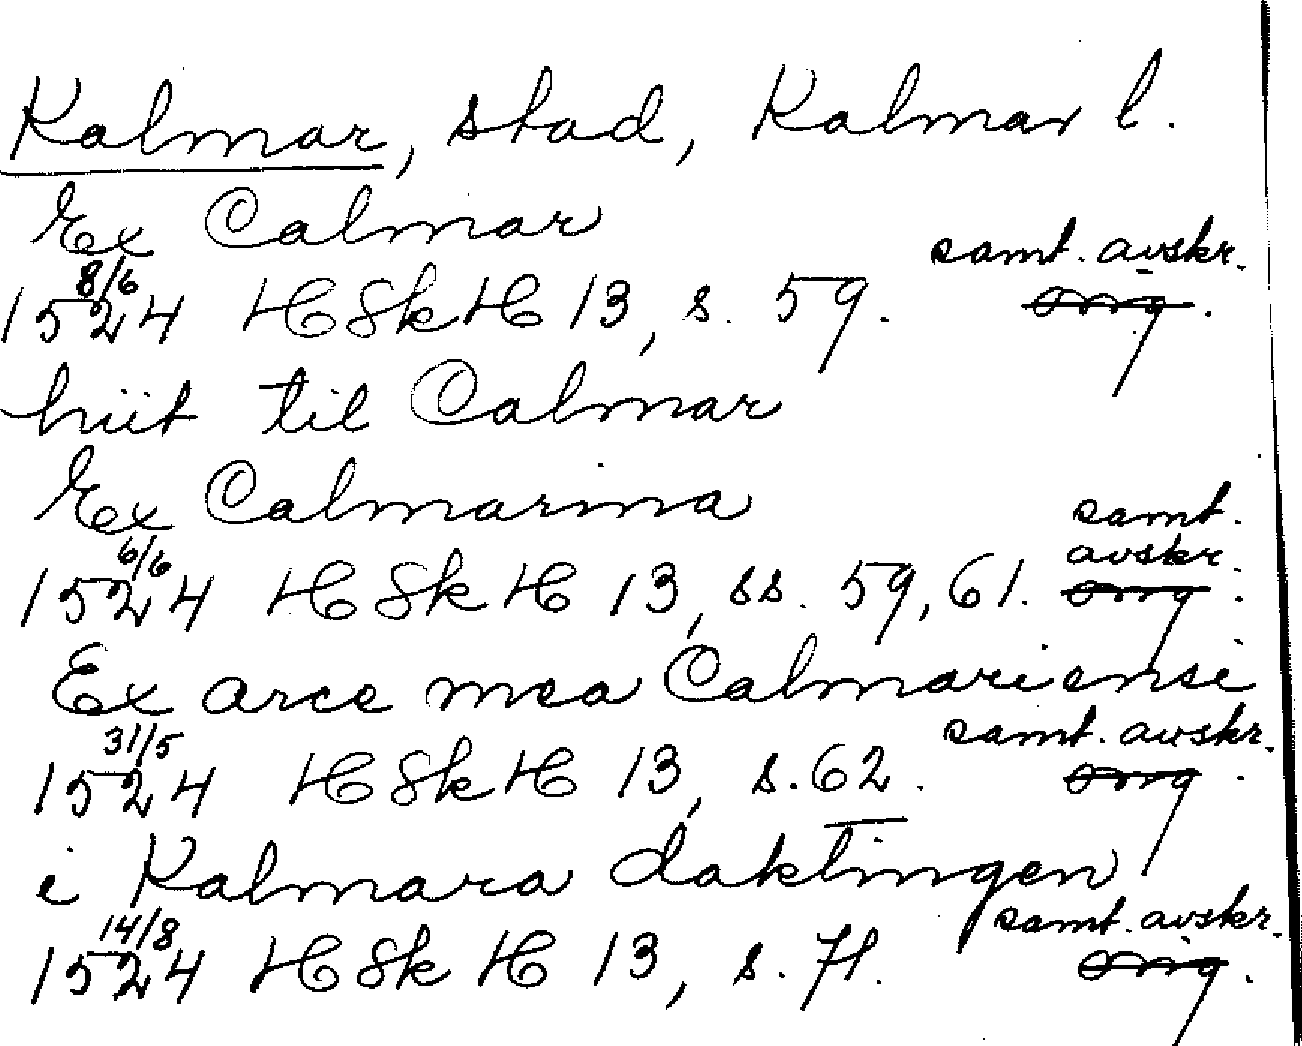 Kalmar, stad, Kalmar l.
Ex Calmar
8/6 samt. avskr.
1524 HSkH 13, s. 59. orig.
hiit til Calmar
Ex Calmarina samt.
6/6 avskr.
1524 HSkH 13, ss. 59, 61. orig.
Ex arce mea Calmariensi
31/5 samt. avskr.
1524 HSkH 13, s. 62. orig.
i Kalmara daktingen
14/8 samt. avskr.
1524 HSkH 13, s. 71. orig.